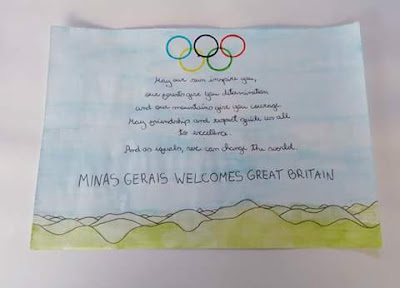 May our sun inspire you,
our forests give you determination
and our mountains give you courage.
May friendship and respect guide us all
to excellence.
And as equals, we can change the world.
MINAS GERAIS WELCOMES GREAT BRITAIN